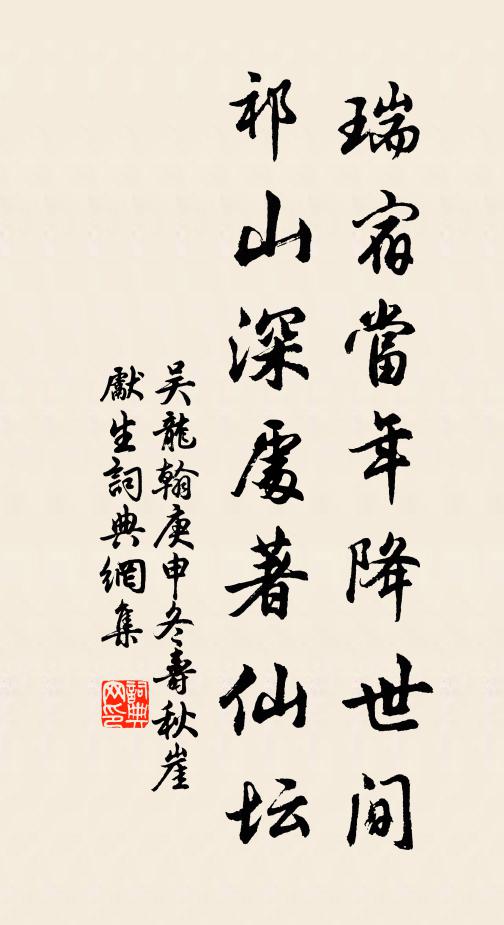 瑞宿當年降世間
祁山深處著仙坛
吴龍翰庚申冬壽秋崖
獻生詞典網集
詞典网印